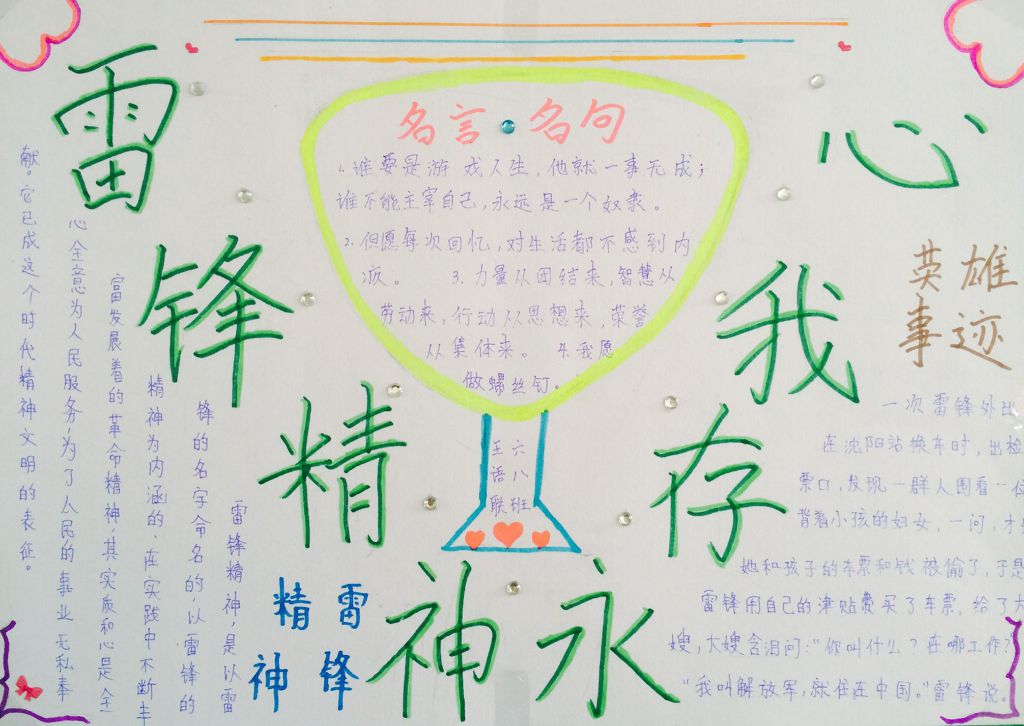 雷锋精神永存我心
名言·名句
1.谁要是游戏人生,他就一事无成;
谁不能主宰自己,永远是一个奴隶。
2.但愿每次回忆,对生活都不感到内
疚。 3.力量从团结来,智慧从
劳动来,行动从思想来,荣誉
从集体来。 4.我愿
做螺丝钉。
六八班
王语联
英雄
事迹
一次雷锋外出
在沈阳站换车时,出检
票口,发现一群人围看一位
背着小孩的妇女,一问,才
她和孩子的车票和钱被偷了,于是
雷锋用自己的津贴费买了车票,给了大
嫂,大嫂含泪问:“你叫什么?在哪工作?
“我叫解放军,就住在中国。”雷锋说。
雷锋
精神
雷锋精神,是以雷
锋的名字命名的,以雷锋的
精神为内涵的,在实践中不断丰
富发展着的革命精神,其实质和心是全
心全意为人民服务,为了人民的事业无私奉
献。它已成这个时代精神文明的表征。